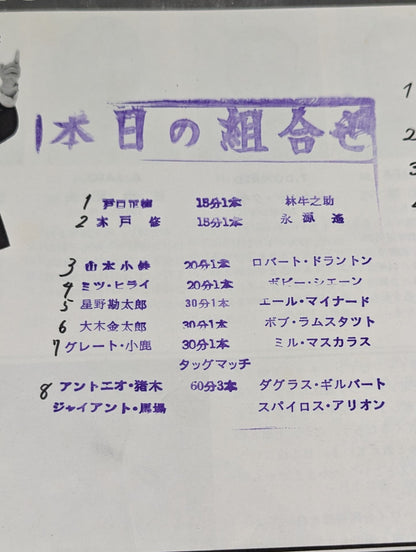 本日の組合せ
1 戸口正徳 15分1本 林牛之助
2 木戸修 15分1本 永源遙
3 山本小鉄 20分1本 ロバート・ドラントン
4 ミツ・ヒライ 20分1本 ボビー・シエーン
5 星野勘太郎 30分1本 エール・マイナード
6 大木金太郎 30分1本 ボブ・ラムスタツト
7 グレート・小鹿 30分1本 ミル・マスカラス
タッグマッチ
8 アントニオ・猪木 60分3本 ダグラス・ギルバート
ジャイアント・馬場 スパイロス・アリオン
1
2
3